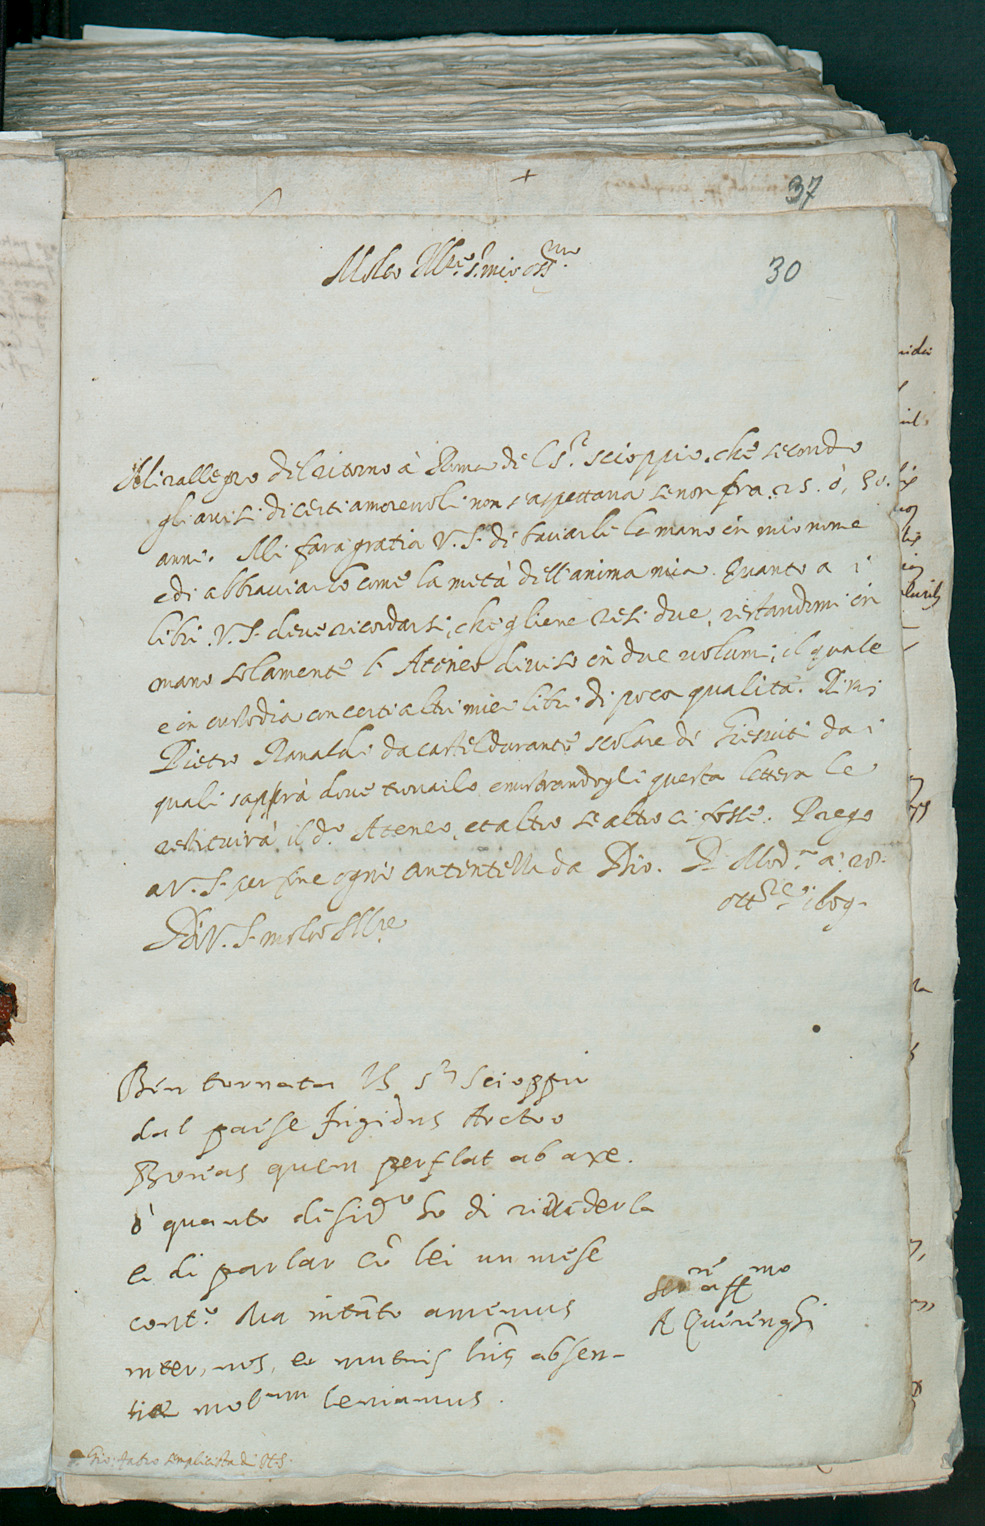 37
30
Molto Ill.re S.r mio oss.mo
Mi rallegro del ritorno à Roma del S.r Scioppio, che secondo
gli avisi di certi amorevoli non s'aspettava se non fra 25. ò, 30.
anni. Mi farà gratia V. S. di baciarli le mano in mio nome
e di abbracciarlo come la metà dell'anima mia. Quanto a i
libri V. S. deve ricordarsi, che gliene resi due, restandomi in
mano solamente l'Ateneo diviso in due volumi; il quale
e in custodia con certi altri miei libri di poca qualità.
Pietro Ranaldi da Casteldurante scolare de Giesuiti da i
quali sapprà dove trovarlo e mostrandogli questa lettera le
restituirà il d.o Ateneo, et altro se altro ci fosse. Prego
a V. S. per fine ogni da Dio. Di Mod.na a 28.
ott.re 1609.
Di V. S. molto Ill.re
Ben tornato Il S.r Scioppio
dal paese frigidus Arcto
Boreas quem perflat ab axe.
ò quanto desid.o ho di rivederla
e di parlar cō lei un mese
cont.o Ma intāto amemus
inter nos, et mutuis absen-
tiæ leniamus.
Ser.re aff.mo
A Querenghi
S. Gio: Fabro semplicista di N. S.